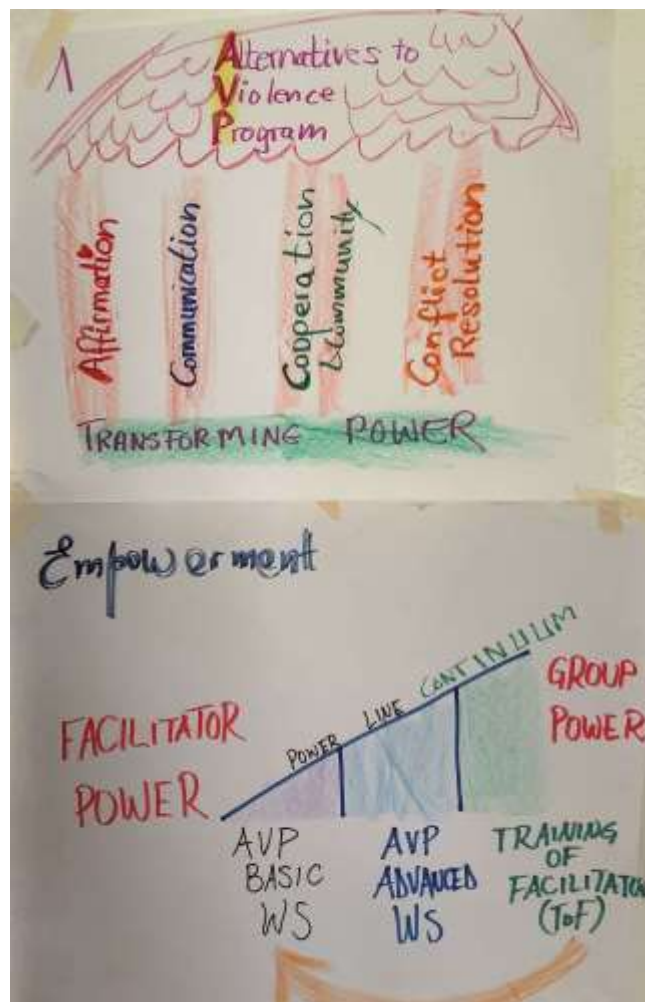 1
Alternatives to
Violence
Program
Affirmation
Communication
Cooperation
& Community
Conflict
Resolution
TRANSFORMING POWER
Empowerment
POWER LINE CONTINUUM
FACILITATOR
POWER
GROUP
POWER
AVP
BASIC
WS
AVP
ADVANCED
WS
TRAINING
OF
FACILITATOR
(ToF)